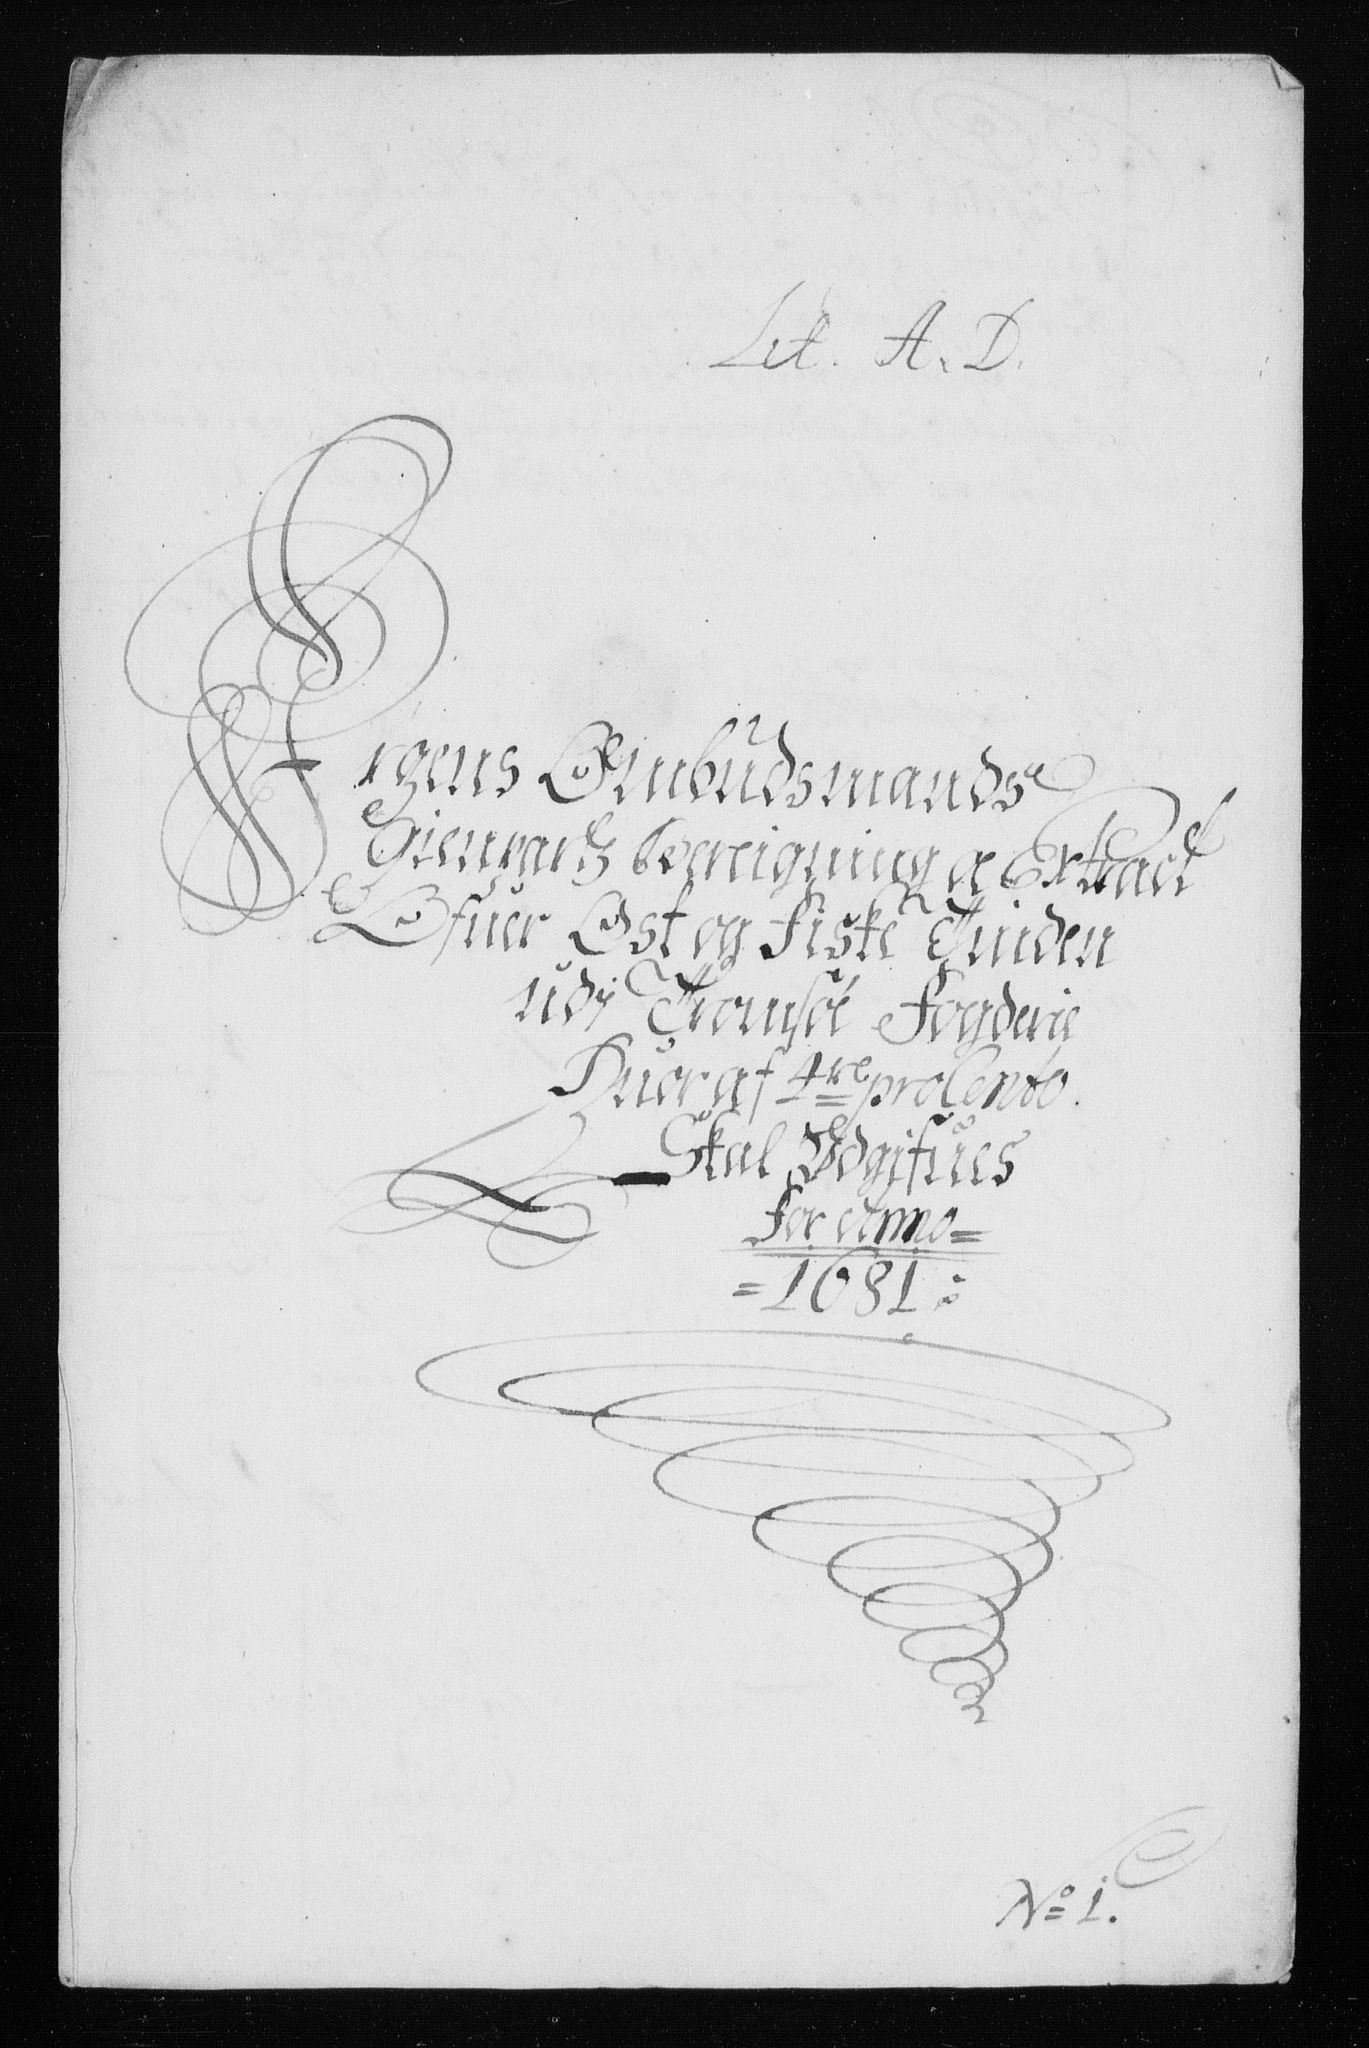 Lit. A. D.
Kirkens Ombudsmands
Gienpartz bereigning og Extract
Ofuer Ost og fiske Tinden
udj Tromsøe Fogderie
Huor af 4re pro Cento
Skal Udgifues
for Anno=
=1681:
No 1.